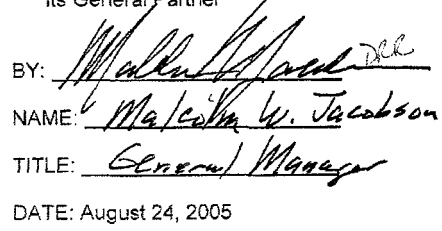 Its General Partner
BY:
NAME: Malcolm W. Jacobson
TITLE: General Manager
DATE: August 24, 2005